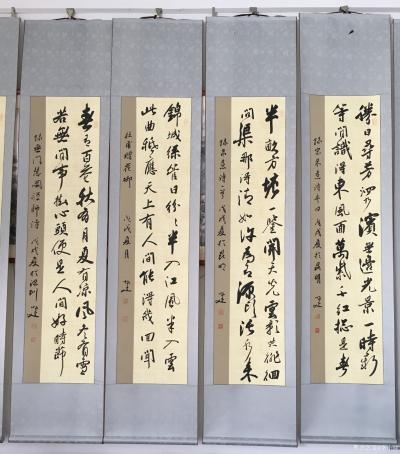 勝日尋芳泗水濱無邊光景一時新
等閒識得東風面萬紫千紅總是春
錄宋朱熹詩春日戊戌夏於昆明
半畝方塘一鑒開天光雲影共徘徊
問渠那得清如許為有源頭活水來
錄宋朱熹詩戊戌夏於昆明
錦城絲管日紛紛半入江風半入雲
此曲祇應天上有人間能得幾回聞
杜甫贈花卿戊戌夏月
春有百花秋有月夏有涼風冬有雪
若無閒事掛心頭便是人間好時節
錄無門慧開禪師詩戊戌夏於深圳